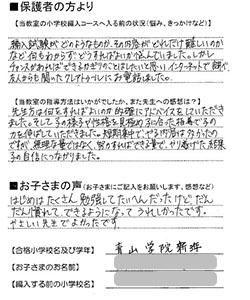 ■保護者の方より
【当教室の小学校編入コースへ入る前の状況(悩み、きっかけなど)】
編入試験がどのようなものか、その内容がどれだけ難しいのか
など何もわからずどうすればよいか悩んでいました。しかし
チャンスがあればできるかぎりのことはしたいと思いインターネットで調べ
友人からも聞いたクレトゥールにお電話しました。
【当教室の指導方法はいかがでしたか、また先生への感想は?】
先生方は何をすればよいか的確にアドバイスをしていただき
ました。そして子の様子や性格を見極め子に合った指導で子の
力を伸ばしていただきました。短期間で、やる内容は多かったので
すが、無理な量ではなく、努力すればできる量で、やり遂げた結果
子の自信につながりました。
■お子さまの声(お子さまにご記入をお願いします、感想など)
はじめはたくさん勉強してたいへんだったけど、だん
だん慣れて、できるようになって うれしかったです。
やさしい先生でよかったです
【合格小学校名及び学年】 青山学院新坪
【お子さまのお名前】
【編入する前の小学校名】